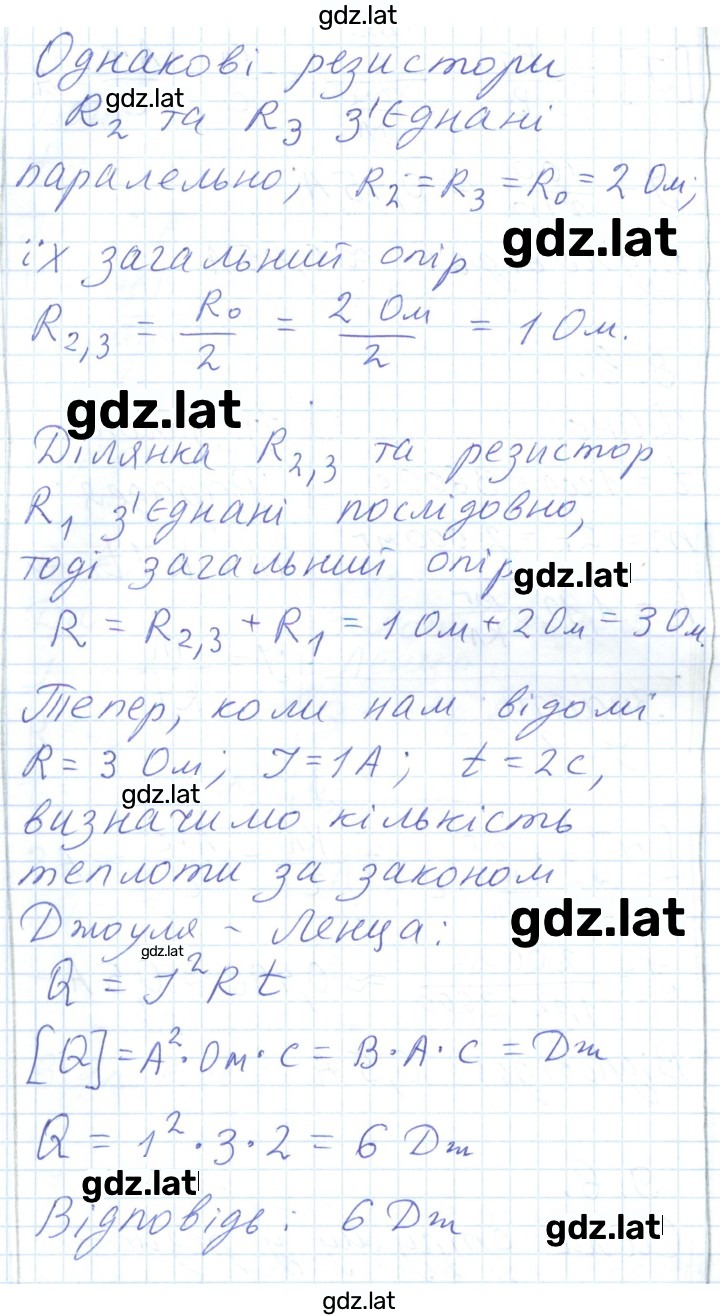 gdz.lat
Однакові резистори
gdz.lat
R₂ та R₃ з'єднані
паралельно; R₂ = R₃ = R₀ = 2 Ом;
gdz.lat
їх загальний опір
R₂,₃ = R₀/2 = 2 Ом/2 = 1 Ом.
gdz.lat
Ділянка R₂,₃ та резистор
R₁ з'єднані послідовно,
тоді загальний опір
gdz.lat
R = R₂,₃ + R₁ = 1 Ом + 2 Ом = 3 Ом.
Тепер, коли нам відомі
R = 3 Ом; I = 1 А; t = 2 с,
gdz.lat
визначимо кількість
теплоти за законом
Джоуля - Ленца:
gdz.lat
gdz.lat
Q = I² R t
[Q] = А² · Ом · с = В · А · с = Дж
Q = 1² · 3 · 2 = 6 Дж
gdz.lat
Відповідь: 6 Дж
gdz.lat
gdz.lat